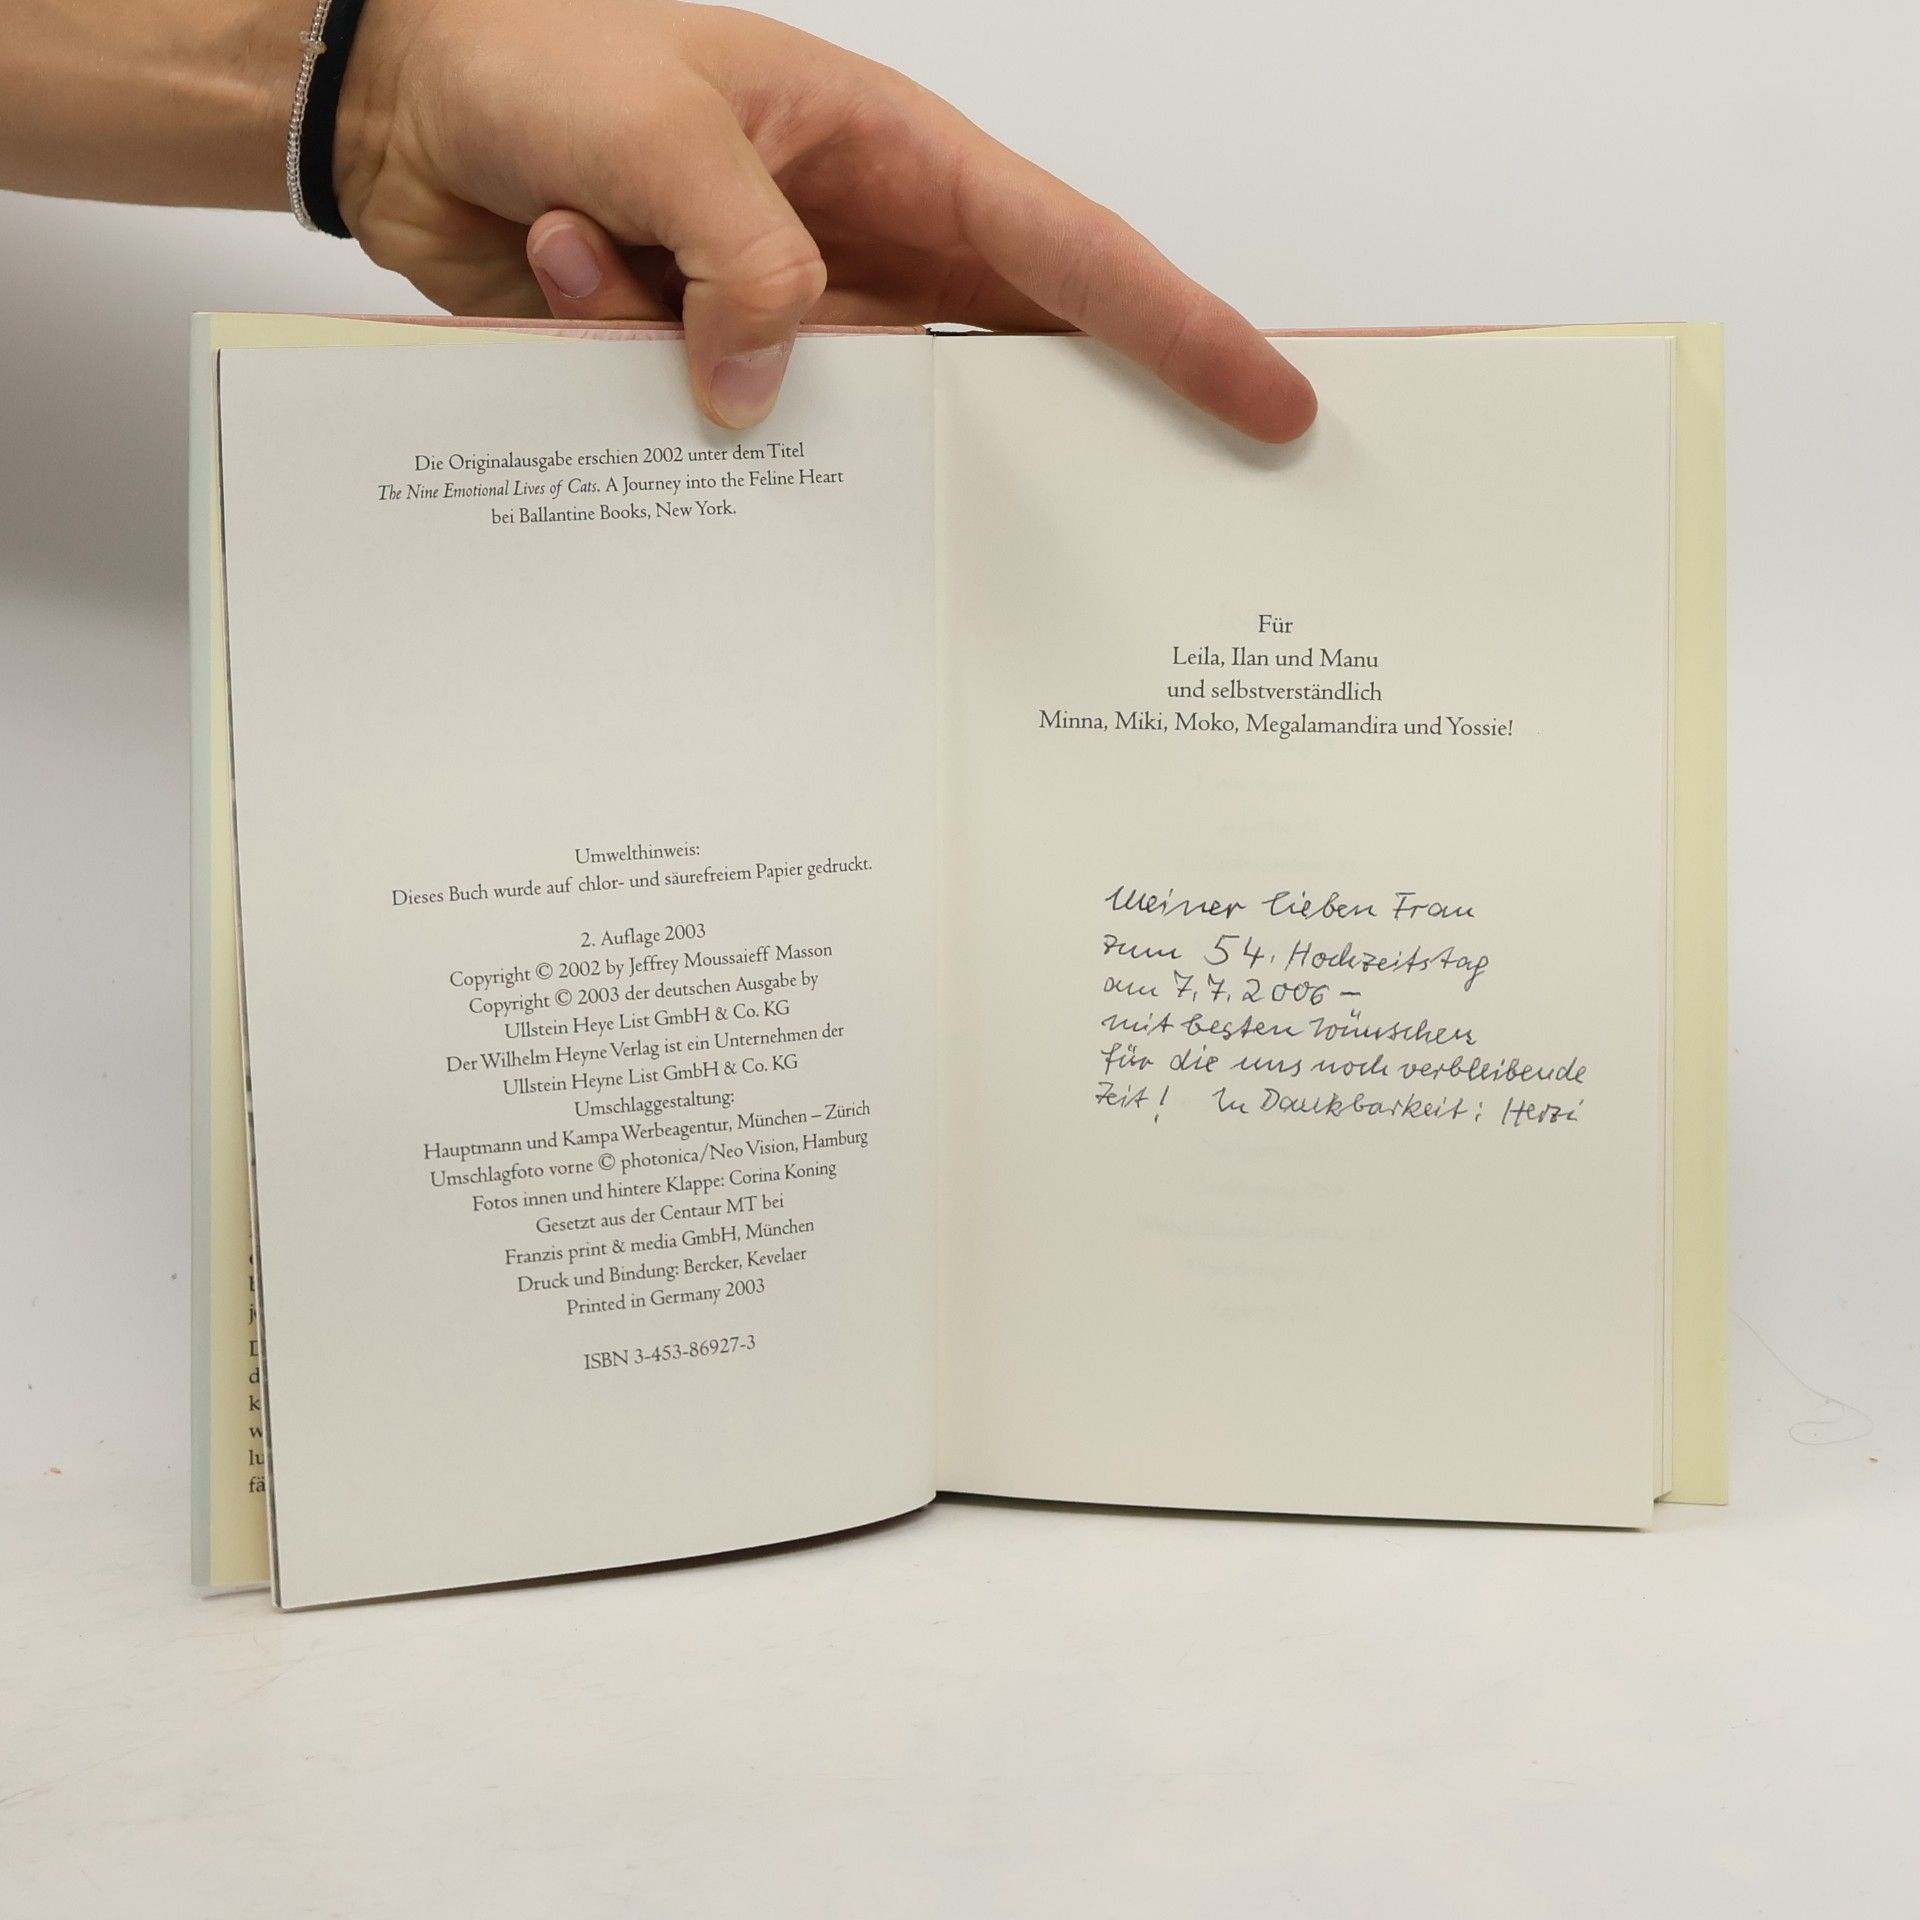 Die Originalausgabe erschien 2002 unter dem Titel
The Nine Emotional Lives of Cats. A Journey into the Feline Heart
bei Ballantine Books, New York.
Umwelthinweis:
Dieses Buch wurde auf chlor- und säurefreiem Papier gedruckt.
2. Auflage 2003
Copyright © 2002 by Jeffrey Moussaieff Masson
Copyright © 2003 der deutschen Ausgabe by
Ullstein Heye List GmbH & Co. KG
Der Wilhelm Heyne Verlag ist ein Unternehmen der
Ullstein Heyne List GmbH & Co. KG
Umschlaggestaltung:
Hauptmann und Kampa Werbeagentur, München – Zürich
Umschlagfoto vorne © photonica/Neo Vision, Hamburg
Fotos innen und hintere Klappe: Corina Koning
Gesetzt aus der Centaur MT bei
Franzis print & media GmbH, München
Druck und Bindung: Bercker, Kevelaer
Printed in Germany 2003
ISBN 3-453-86927-3
Für
Leila, Ilan und Manu
und selbstverständlich
Minna, Miki, Moko, Megalamandira und Yossie!
Meiner lieben Frau
zum 54. Hochzeitstag
am 7.7.2006 –
mit besten Wünschen
für die uns noch verbleibende
Zeit! In Dankbarkeit: Herzi